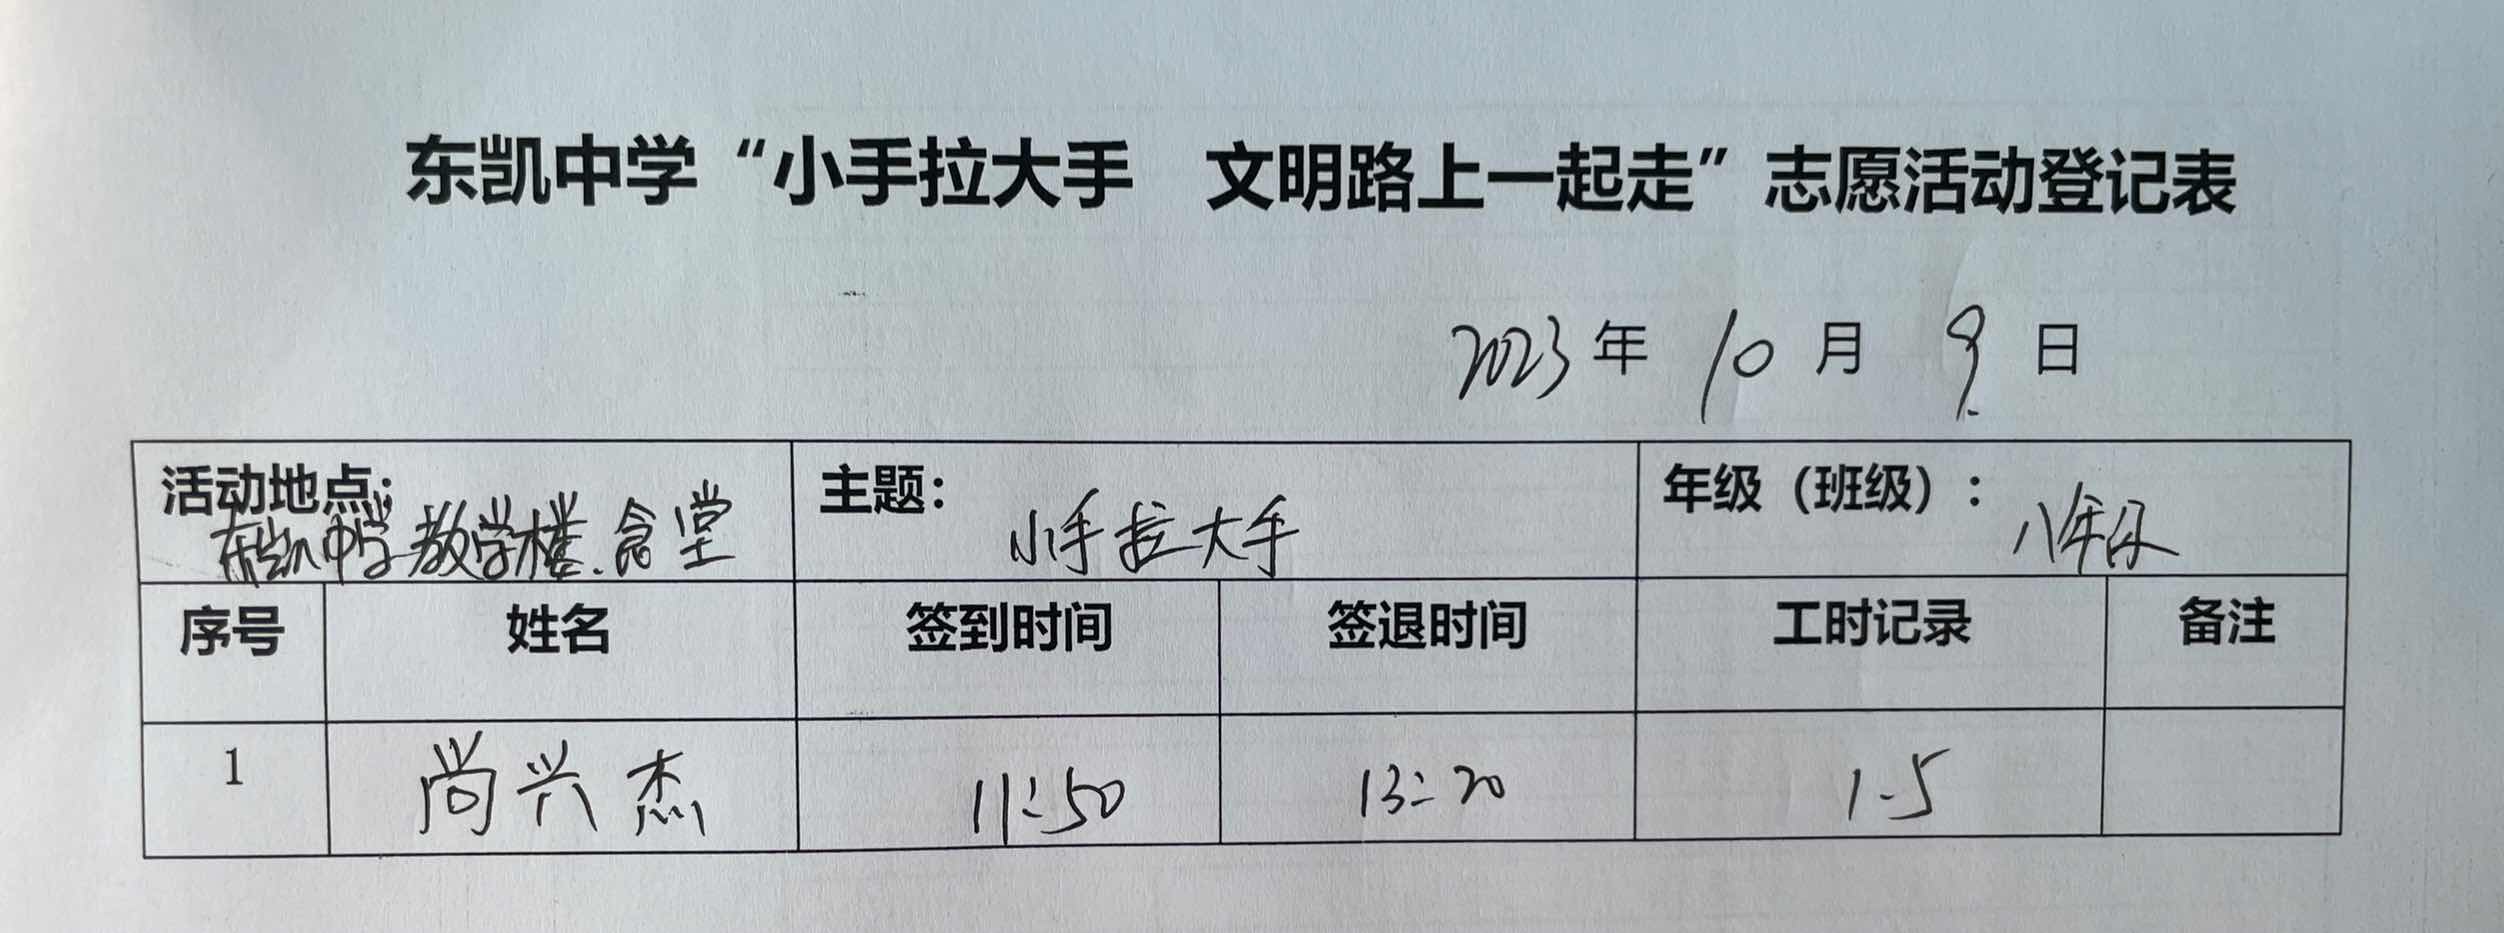 东凯中学“小手拉大手 文明路上一起走”志愿活动登记表
2023年 10月 9日
活动地点: 东凯中学教学楼、食堂 主题: 小手拉大手 年级（班级）: 八年级
序号 姓名 签到时间 签退时间 工时记录 备注
1 尚兴杰 11:50 13:20 1.5